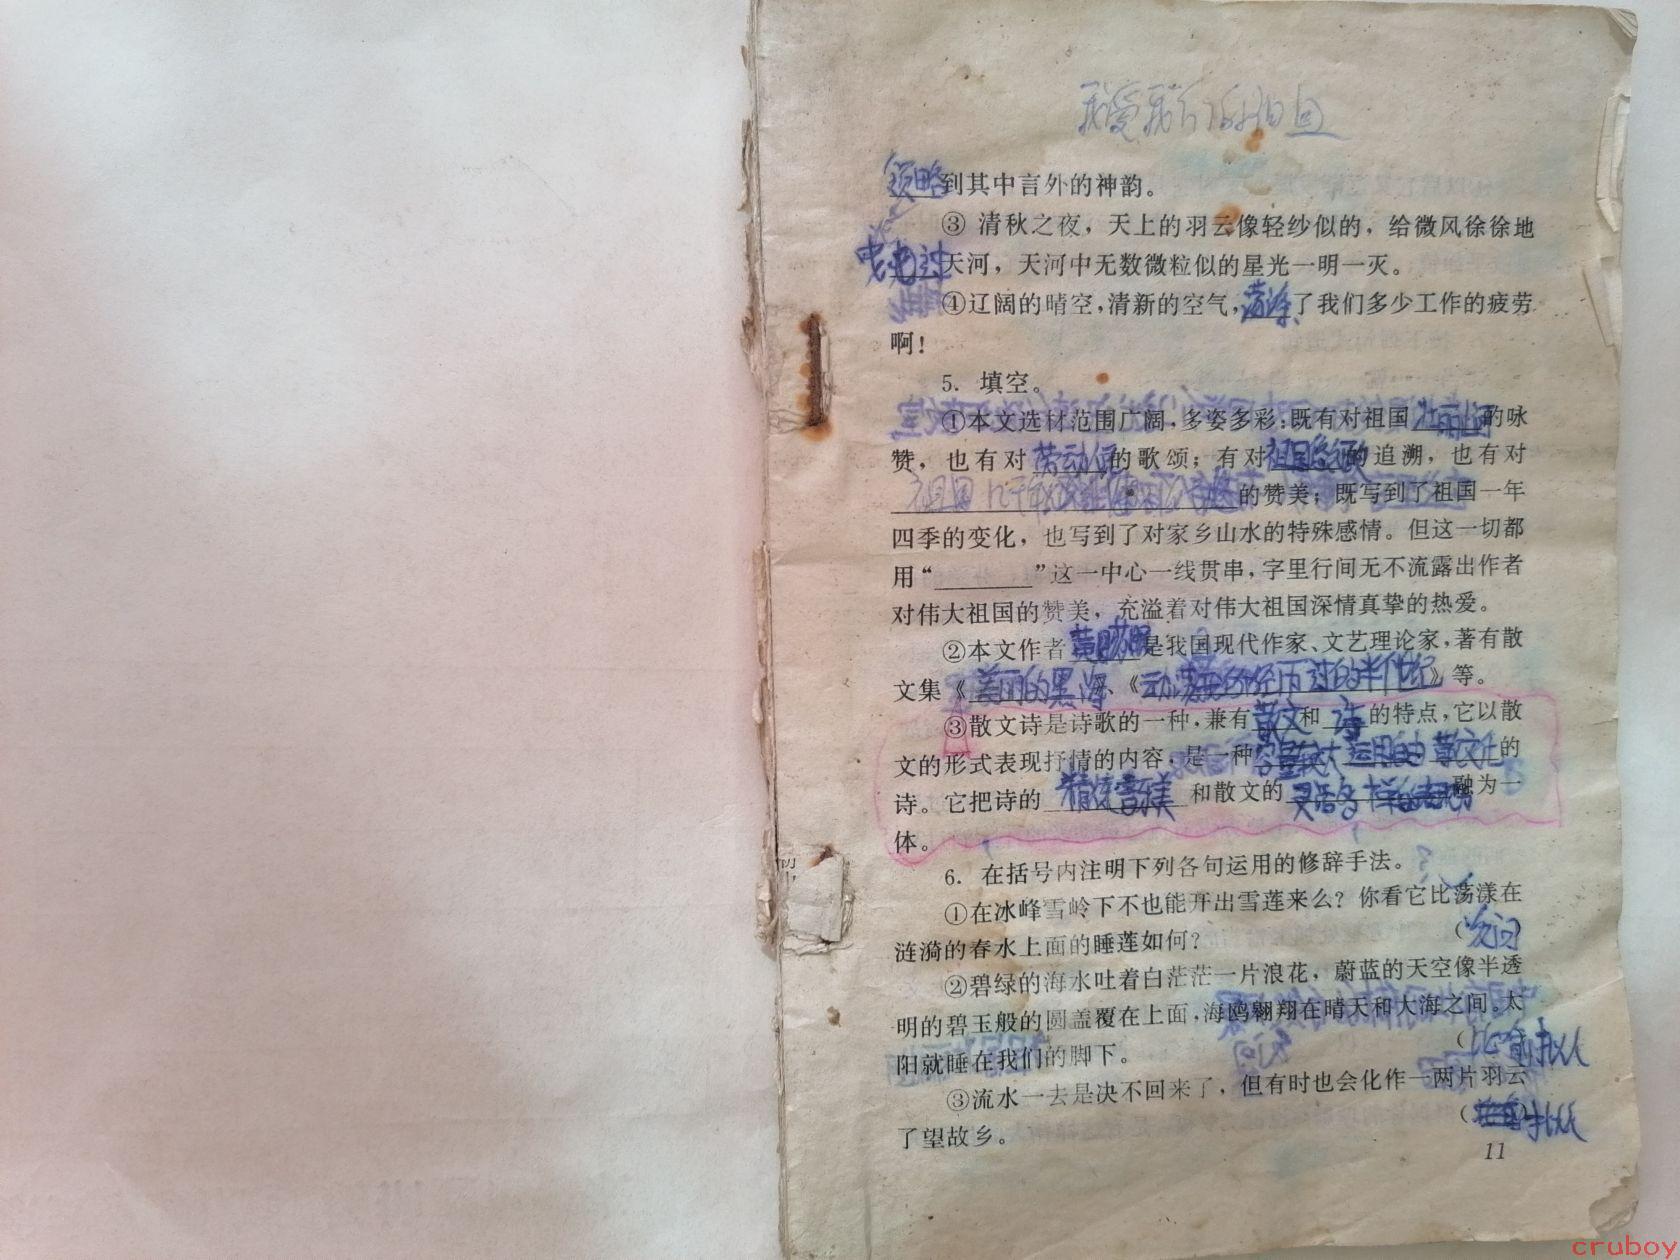 我爱我们的祖国
领略到其中言外的神韵。
③ 清秋之夜，天上的羽云像轻纱似的，给微风徐徐地
天河，天河中无数微粒似的星光一明一灭。
④辽阔的晴空，清新的空气，荡涤了我们多少工作的疲劳
啊！
5. 填空。
①本文选材范围广阔，多姿多彩：既有对祖国的咏
赞，也有对劳动人民的歌颂；有对祖国的追溯，也有对
祖国的赞美；既写到了祖国一年
四季的变化，也写到了对家乡山水的特殊感情。但这一切都
用“______”这一中心一线贯串，字里行间无不流露出作者
对伟大祖国的赞美，充溢着对伟大祖国深情真挚的热爱。
②本文作者黄药眠是我国现代作家、文艺理论家，著有散
文集《美丽的黑海》、《动荡：我所经历的半个世纪》等。
③散文诗是诗歌的一种，兼有散文和诗的特点，它以散
文的形式表现抒情的内容，是一种容量较大运用自由散文化的
诗。它把诗的精炼音乐美和散文的灵活多样的表现力融为一
体。
6. 在括号内注明下列各句运用的修辞手法。
①在冰峰雪岭下不也能开出雪莲来么？你看它比荡漾在
涟漪的春水上面的睡莲如何？（反问）
②碧绿的海水吐着白茫茫一片浪花，蔚蓝的天空像半透
明的碧玉般的圆盖覆在上面，海鸥翱翔在晴天和大海之间。太
阳就睡在我们的脚下。（比喻拟人
③流水一去是决不回来了，但有时也会化作一两片羽云
了望故乡。（拟人
11
cruboy